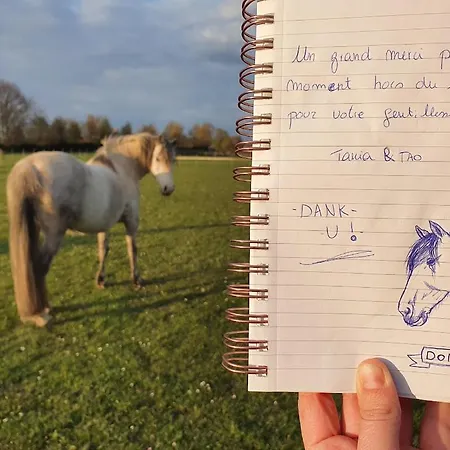 Un grand merci p
moment hors du
pour votre gentilless
Tania & TAO
- DANK -
U !
DOI